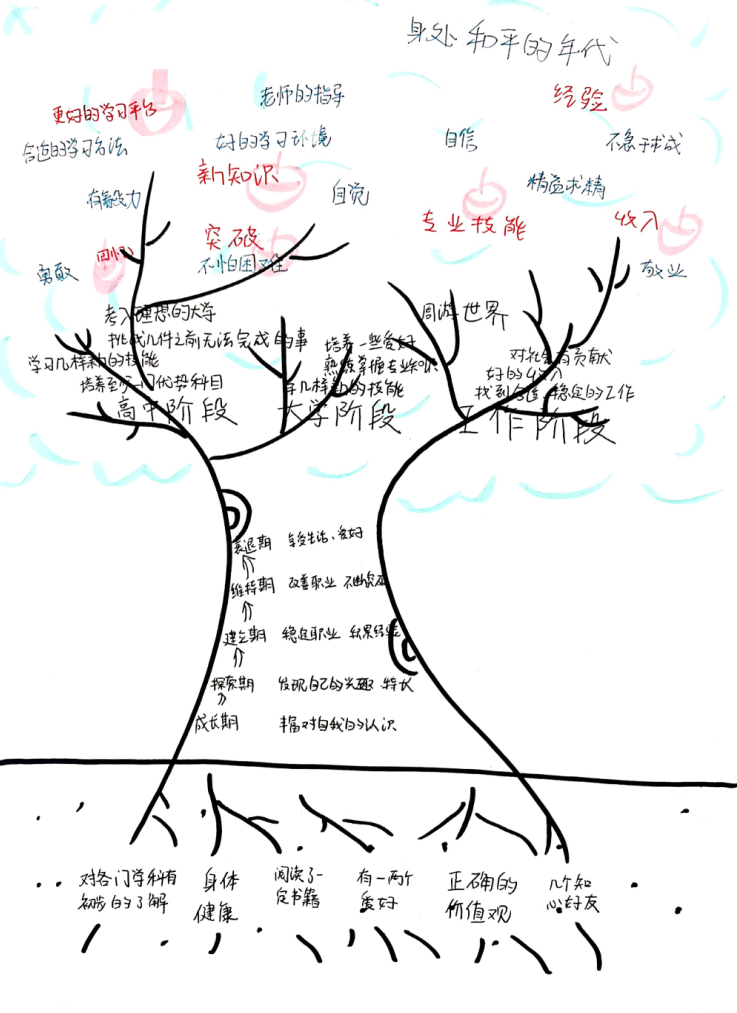 身处和平的年代
更好的学习平台
老师的指导
经验
合适的学习方法
好的学习环境
自信
不急于求成
新知识
有毅力
自觉
精益求精
专业技能
收入
突破
不怕困难
勇敢
敬业
考入理想的大学
挑战几件之前无法完成的事
学习几样新的技能
培养至少一门优势科目
高中阶段
培养一些爱好
熟练掌握专业知识
学几样新的技能
大学阶段
周游世界
对社会有贡献
好的收入
找到合适、稳定的工作
工作阶段
衰退期 享受生活、爱好
维持期 改善职业 不断突破
建立期 稳定职业 积累经验
探索期 发现自己的兴趣 特长
成长期 丰富对自我的认识
对各门学科有
初步的了解
身体
健康
阅读了一
定书籍
有一两个
爱好
正确的
价值观
几个知
心好友